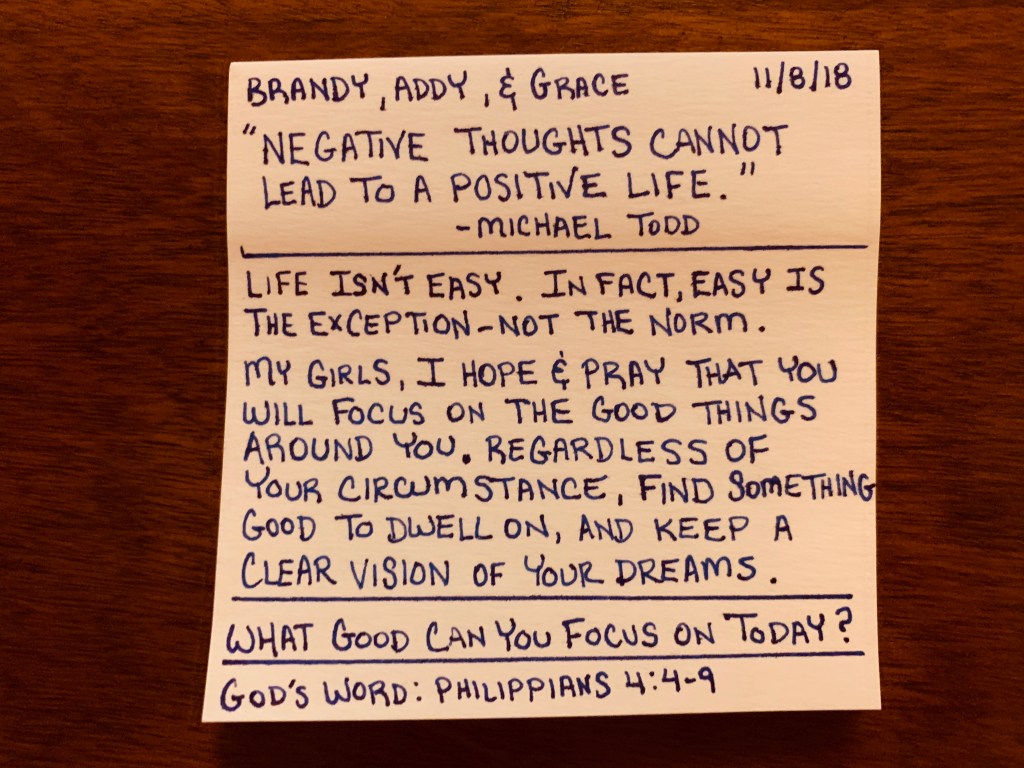 BRANDY, ADDY, & GRACE 11/8/18
"NEGATIVE THOUGHTS CANNOT
LEAD TO A POSITIVE LIFE."
-MICHAEL TODD
LIFE ISN'T EASY. IN FACT, EASY IS
THE EXCEPTION-NOT THE NORM.
MY GIRLS, I HOPE & PRAY THAT YOU
WILL FOCUS ON THE GOOD THINGS
AROUND YOU. REGARDLESS OF
YOUR CIRCUMSTANCE, FIND SOMETHING
GOOD TO DWELL ON, AND KEEP A
CLEAR VISION OF YOUR DREAMS.
WHAT GOOD CAN YOU FOCUS ON TODAY?
GOD'S WORD: PHILIPPIANS 4:4-9